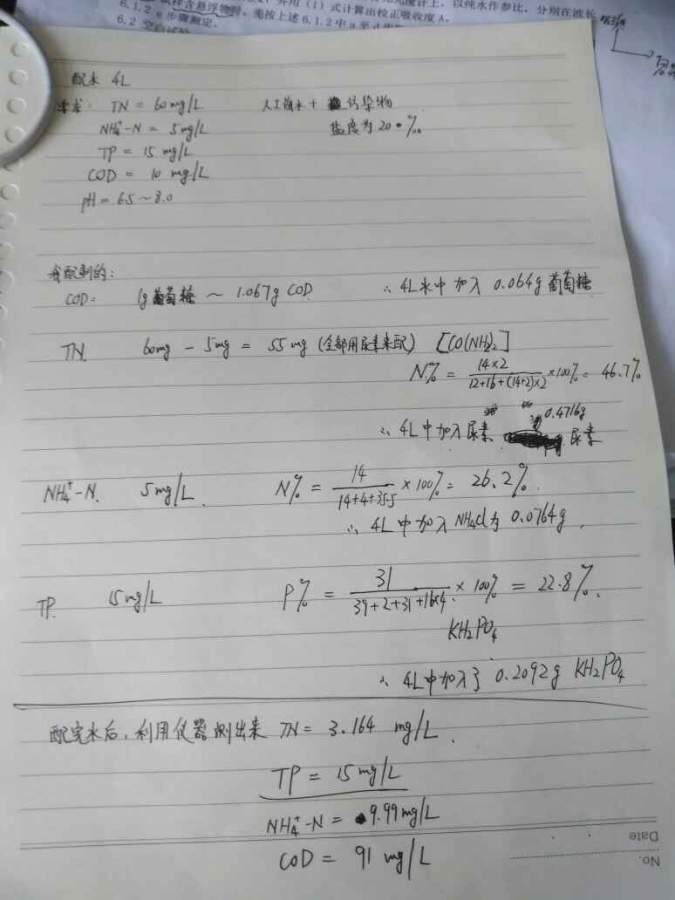 6.1.2
6.1.2 e 步骤测定。
6.2 空白试验
配水 4L
要求: TN = 60mg/L 人工海水 + 污染物
NH₄⁺-N = 5mg/L 盐度为 20‰
TP = 15 mg/L
COD = 10 mg/L
pH = 6.5 ~ 8.0
我配制的:
COD = 1g葡萄糖 ~ 1.067g COD ∴ 4L水中加入 0.064g葡萄糖
TN. 60mg - 5mg = 55mg (全部用尿素来配) [CO(NH₂)₂]
N% = 14×2/12+16+(14+2)×2 ×100% = 46.7%
∴ 4L中加入尿素 0.4716g 尿素
NH₄⁺-N. 5mg/L. N% = 14/14+4+35.5 ×100% = 26.2%
∴ 4L中加入NH₄Cl为 0.0764g.
TP. 15mg/L P% = 31/39+2+31+16×4 ×100% = 22.8%.
KH₂PO₄
∴ 4L中加入了 0.2092g KH₂PO₄
配完水后, 利用仪器测出来 TN = 3.164 mg/L.
TP = 15mg/L
NH₄⁺-N = 9.99mg/L
COD = 91 mg/L
Date
No.